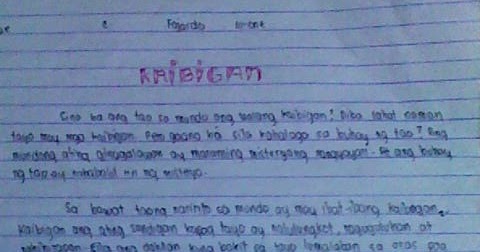 Fajardo
KAIBIGAN
Sino ba ang tao sa mundo ang walang kaibigan? Diba lahat naman
tayo may mga kaibigan. Pero gaano ba sila kahalaga sa buhay ng tao? Ang
mundong ating ginagalawan ay maraming misteryong At ang buhay
ng tao ay rin ng misteryo.
Sa bawat taong narito sa mundo ay may ibat-ibang kaibigan.
Kaibigan ang ating sandigan kapag tayo ay nalulungkot, at
Sila ang dahilan kung bakit sa tayo sa oras